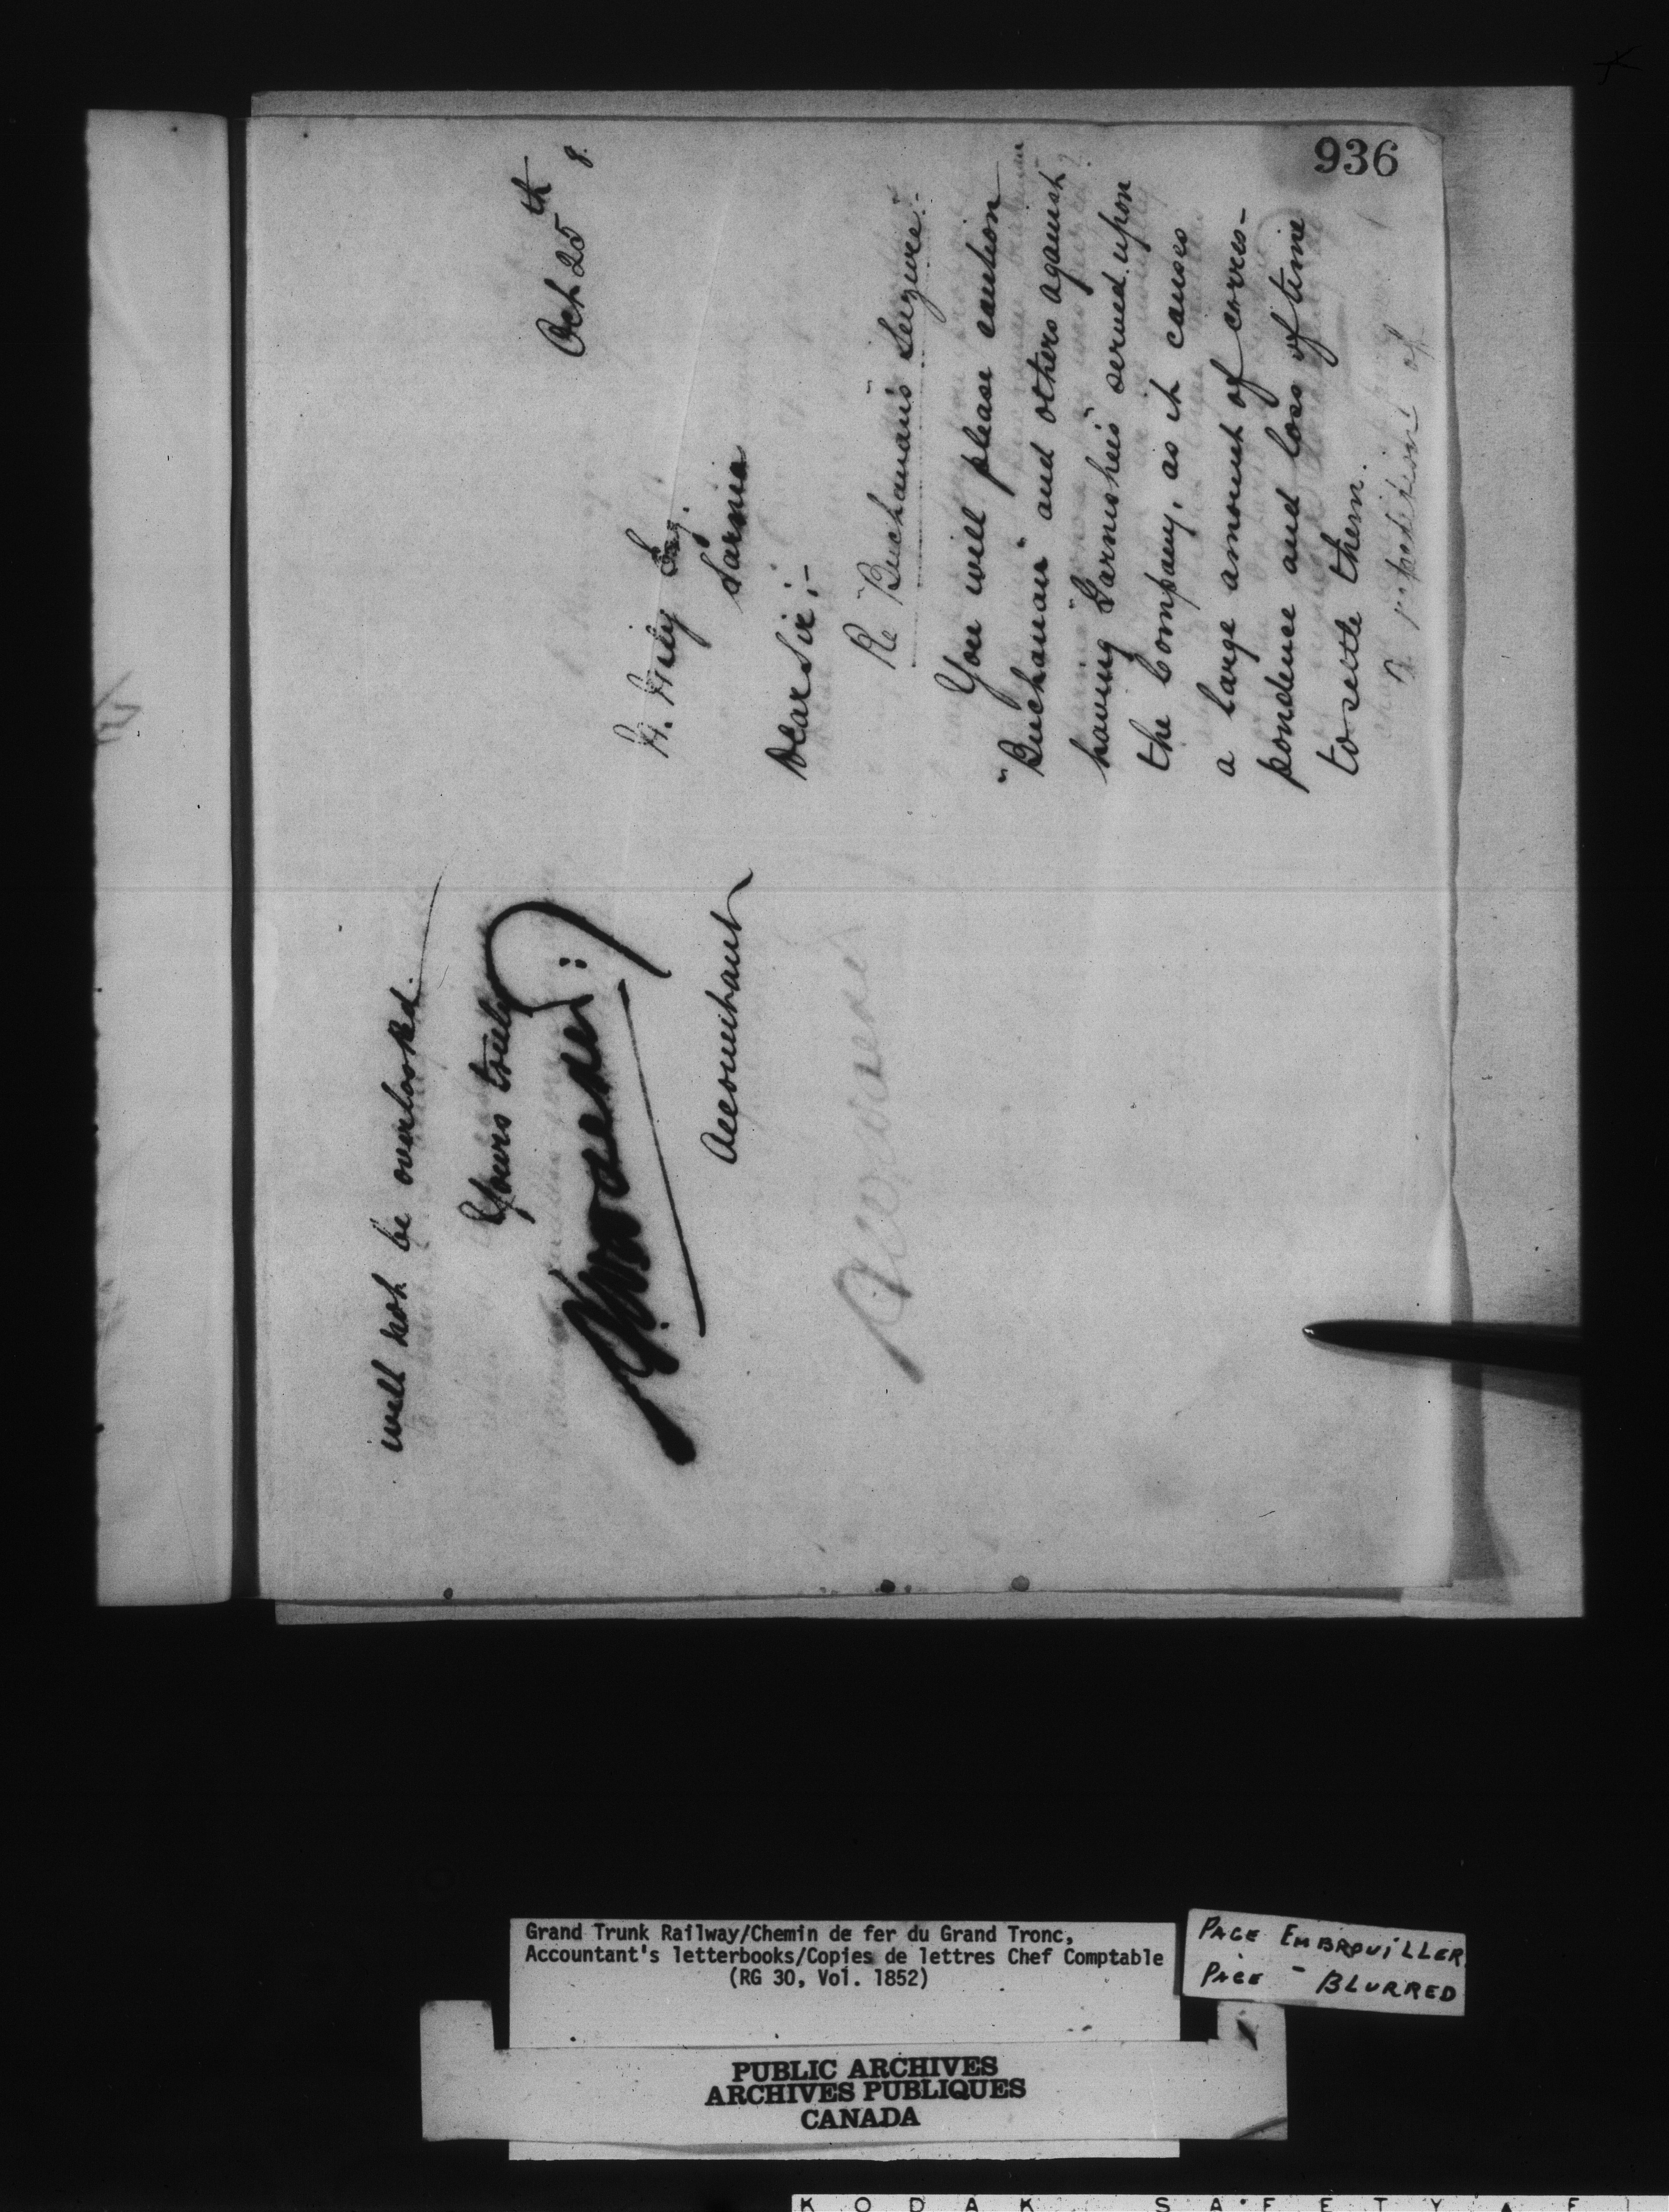 936
Oct 25th 8.
Esq.
Sarnia
Dear Sir;-
Re "Buchanan's" Seizure:-
You will please caution
"Buchanan" and others against
having "Garnishees" served upon
the Company, as it causes
a large amount of corres-
pondence and loss of time
to settle them.
A repetition of
will not be overlooked.
Yours truly
Accountant
Grand Trunk Railway/Chemin de fer du Grand Tronc,
Accountant's letterbooks/Copies de lettres Chef Comptable
(RG 30, Vol. 1852)
PAGE EMBROUILLER
PAGE - BLURRED
PUBLIC ARCHIVES
ARCHIVES PUBLIQUES
CANADA
KODAK SAFETY